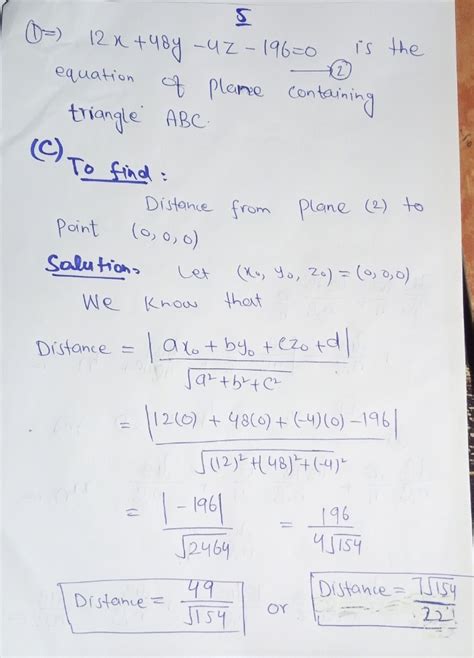 5
①=> 12x+48y-4z-196=0 is the
→②
equation of plane containing
triangle ABC.
(C)
To find:
Distance from plane (2) to
point (0,0,0)
Solution:
Let (x₀, y₀, z₀) = (0,0,0)
We know that
Distance = |ax₀ + by₀ + cz₀ + d| / √a²+b²+c²
= |12(0) + 48(0) + (-4)(0) - 196| / √(12)²+(48)²+(-4)²
= |-196| / √2464 = 196 / 4√154
Distance = 49 / √154 or Distance = 7√154 / 22